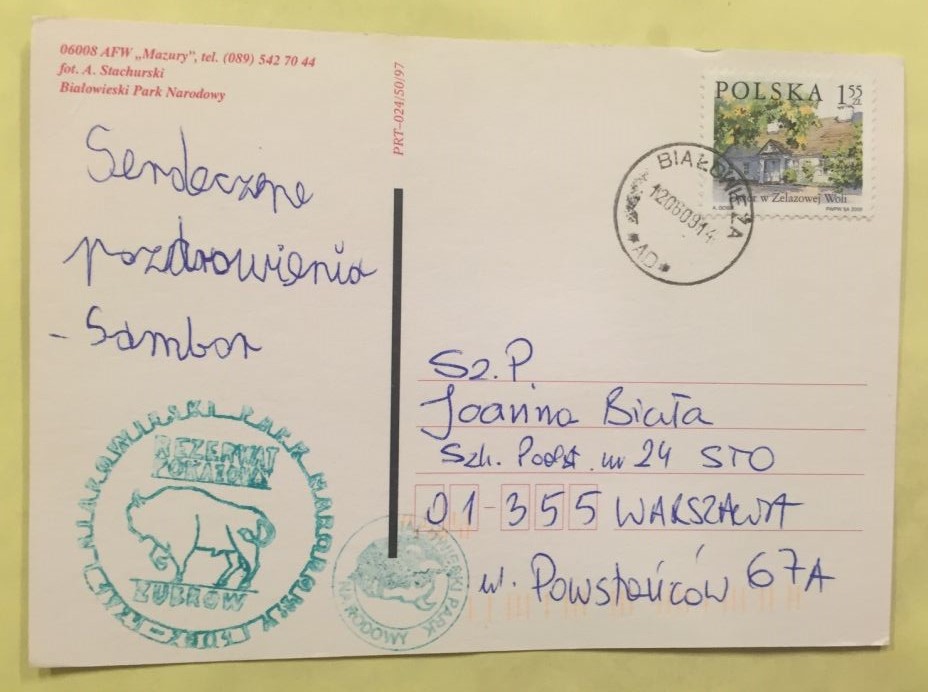 06008 AFW „Mazury”, tel. (089) 542 70 44
fot. A. Stachurski
Białowieski Park Narodowy
PRT–024/50/97
Serdeczne
pozdrowienia
- Sambor
POLSKA 1 55 ZŁ
w Żelazowej Woli
BIAŁOWIEŻA
120609 14
*AD*
Sz. P
Joanna Biała
Szk. Podst. nr 24 STO
01-355 WARSZAWA
ul. Powstańców 67A
BIAŁOWIESKI PARK NARODOWY
REZERWAT
POKAZOWY
ŻUBRÓW
PARK NARODOWY